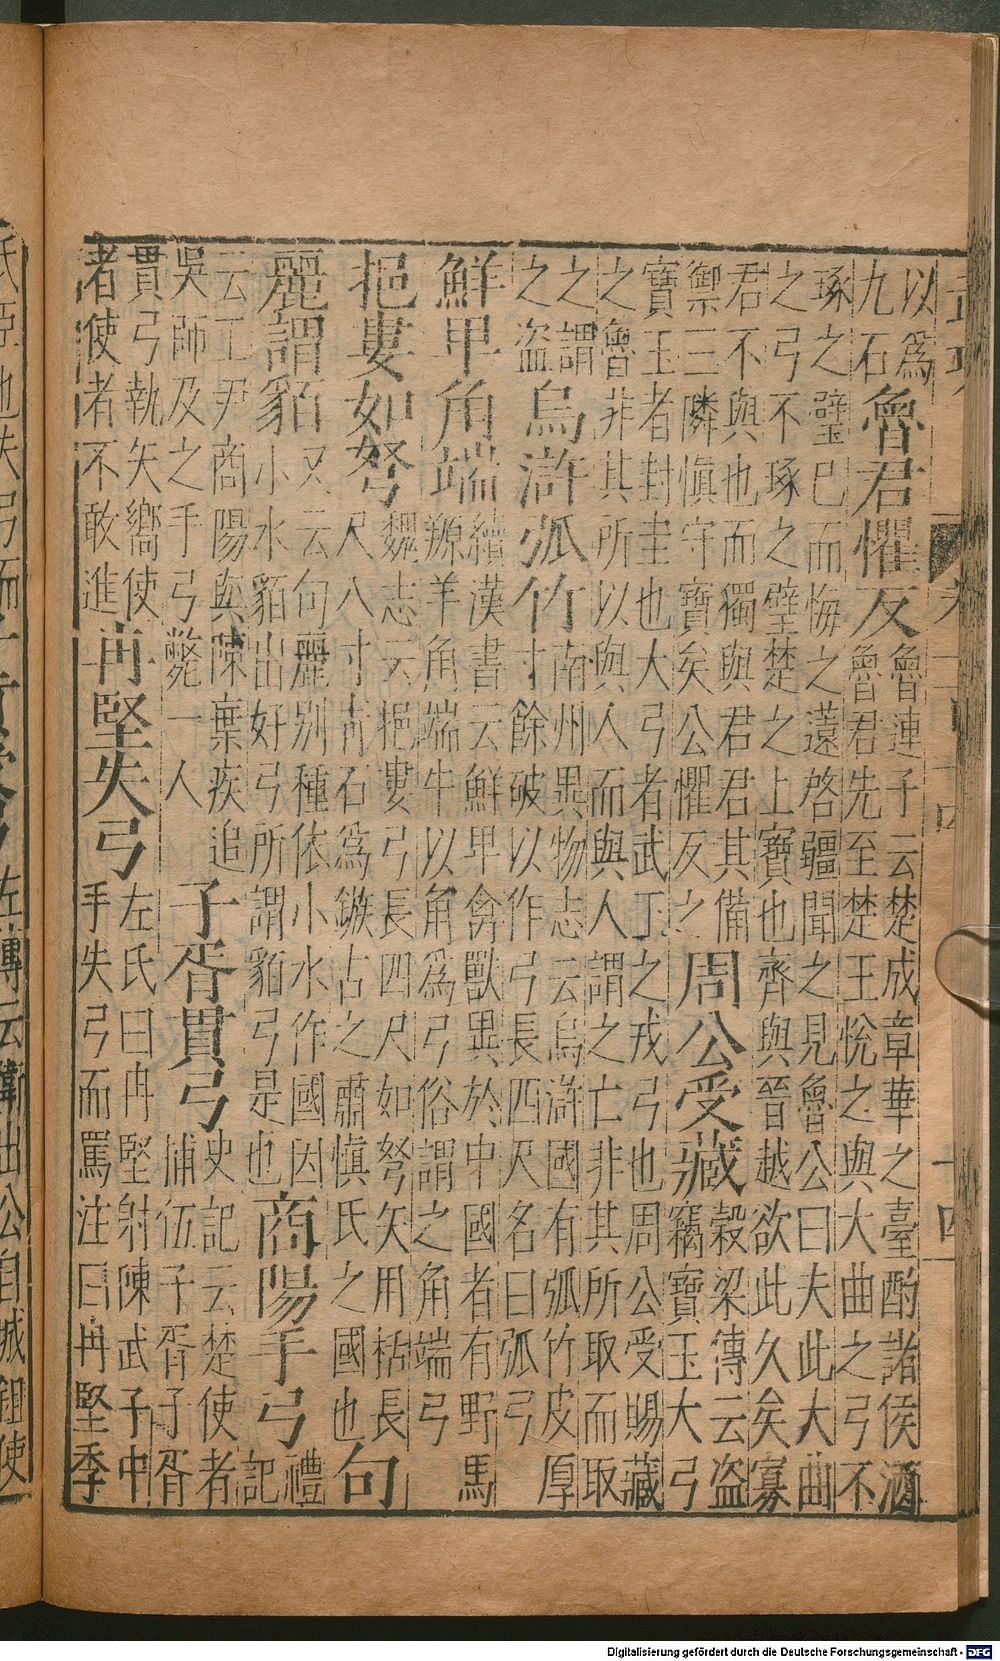 以爲
九石
魯君懼反
魯連子云楚成章華之臺酌諸侯酒
魯君先至楚王悅之與大曲之弓不
琢之璧已而悔之薳啓疆聞之見魯公曰夫此大曲
之弓不琢之璧楚之上寶也齊與晉越欲此久矣寡
君不與也而獨與君君其備
禦三隣愼守寶矣公懼反之
周公受藏
榖梁傳云盜
竊寶玉大弓
寶玉者封圭也大弓者武丁之戎弓也周公受賜藏
之魯非其所以與人而與人謂之亡非其所取而取
之謂
之盜
烏滸弧竹
南州異物志云烏滸國有弧竹皮厚
寸餘破以作弓長四尺名曰弧弓
鮮卑角端
續漢書云鮮卑禽獸異於中國者有野馬
羱羊角端牛以角爲弓俗謂之角端弓
挹婁如弩
魏志云挹婁弓長四尺如弩矢用楛長
尺八寸靑石爲鏃古之肅愼氏之國也
句
麗謂貊
又云句麗別種依小水作國因
小水貊出好弓所謂貊弓是也
商陽手弓
禮
記
云工尹商陽與陳棄疾追
吳師及之手弓斃一人
子胥貫弓
史記云楚使者
捕伍子胥子胥
貫弓執矢嚮使
渚使者不敢進
冉堅失弓
左氏曰冉堅射陳武子中
手失弓而罵注曰冉堅季
氏臣也失弓而
左傳云衛出公自城鉏使
Digitalisierung gefördert durch die Deutsche Forschungsgemeinschaft - DFG